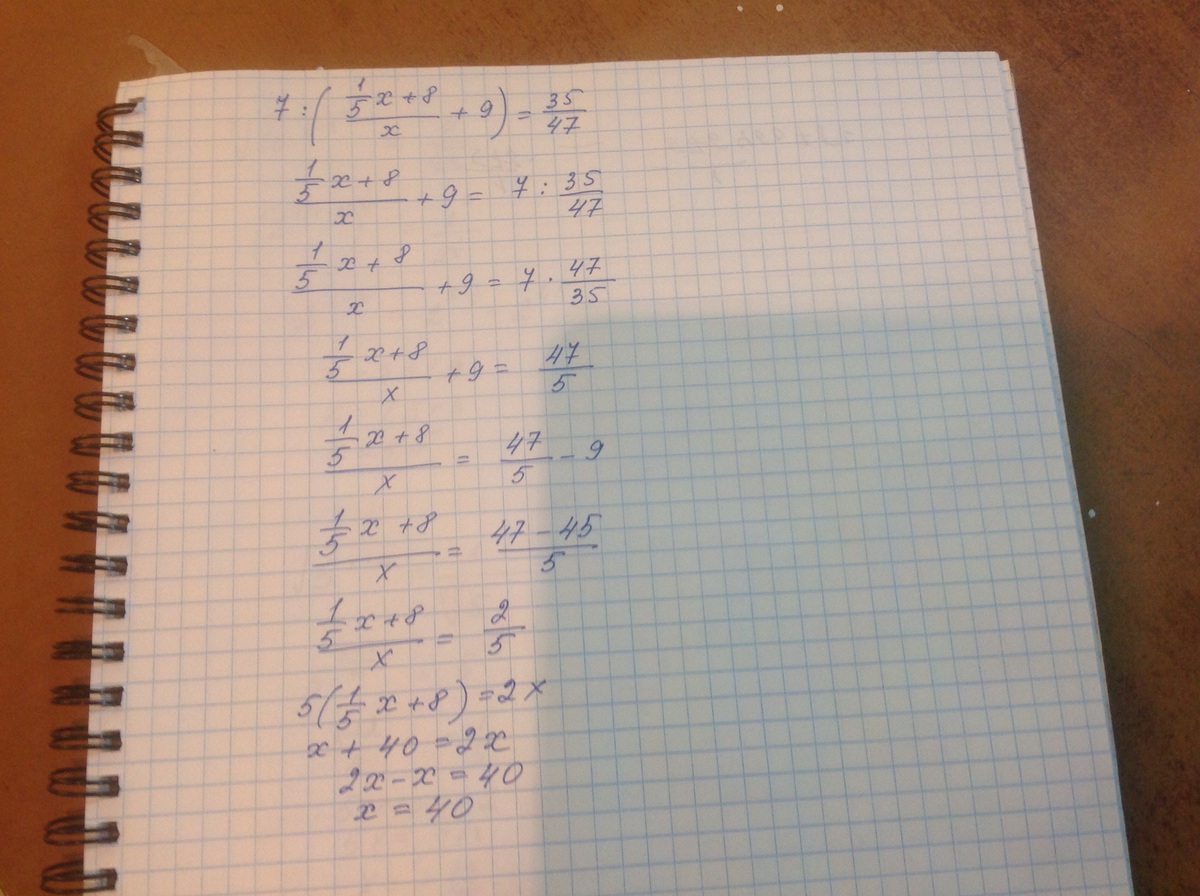 7 : ( (1/5 x + 8)/x + 9 ) = 35/47
(1/5 x + 8)/x + 9 = 7 : 35/47
(1/5 x + 8)/x + 9 = 7 · 47/35
(1/5 x + 8)/x + 9 = 47/5
(1/5 x + 8)/x = 47/5 - 9
(1/5 x + 8)/x = (47 - 45)/5
(1/5 x + 8)/x = 2/5
5(1/5 x + 8) = 2x
x + 40 = 2x
2x - x = 40
x = 40